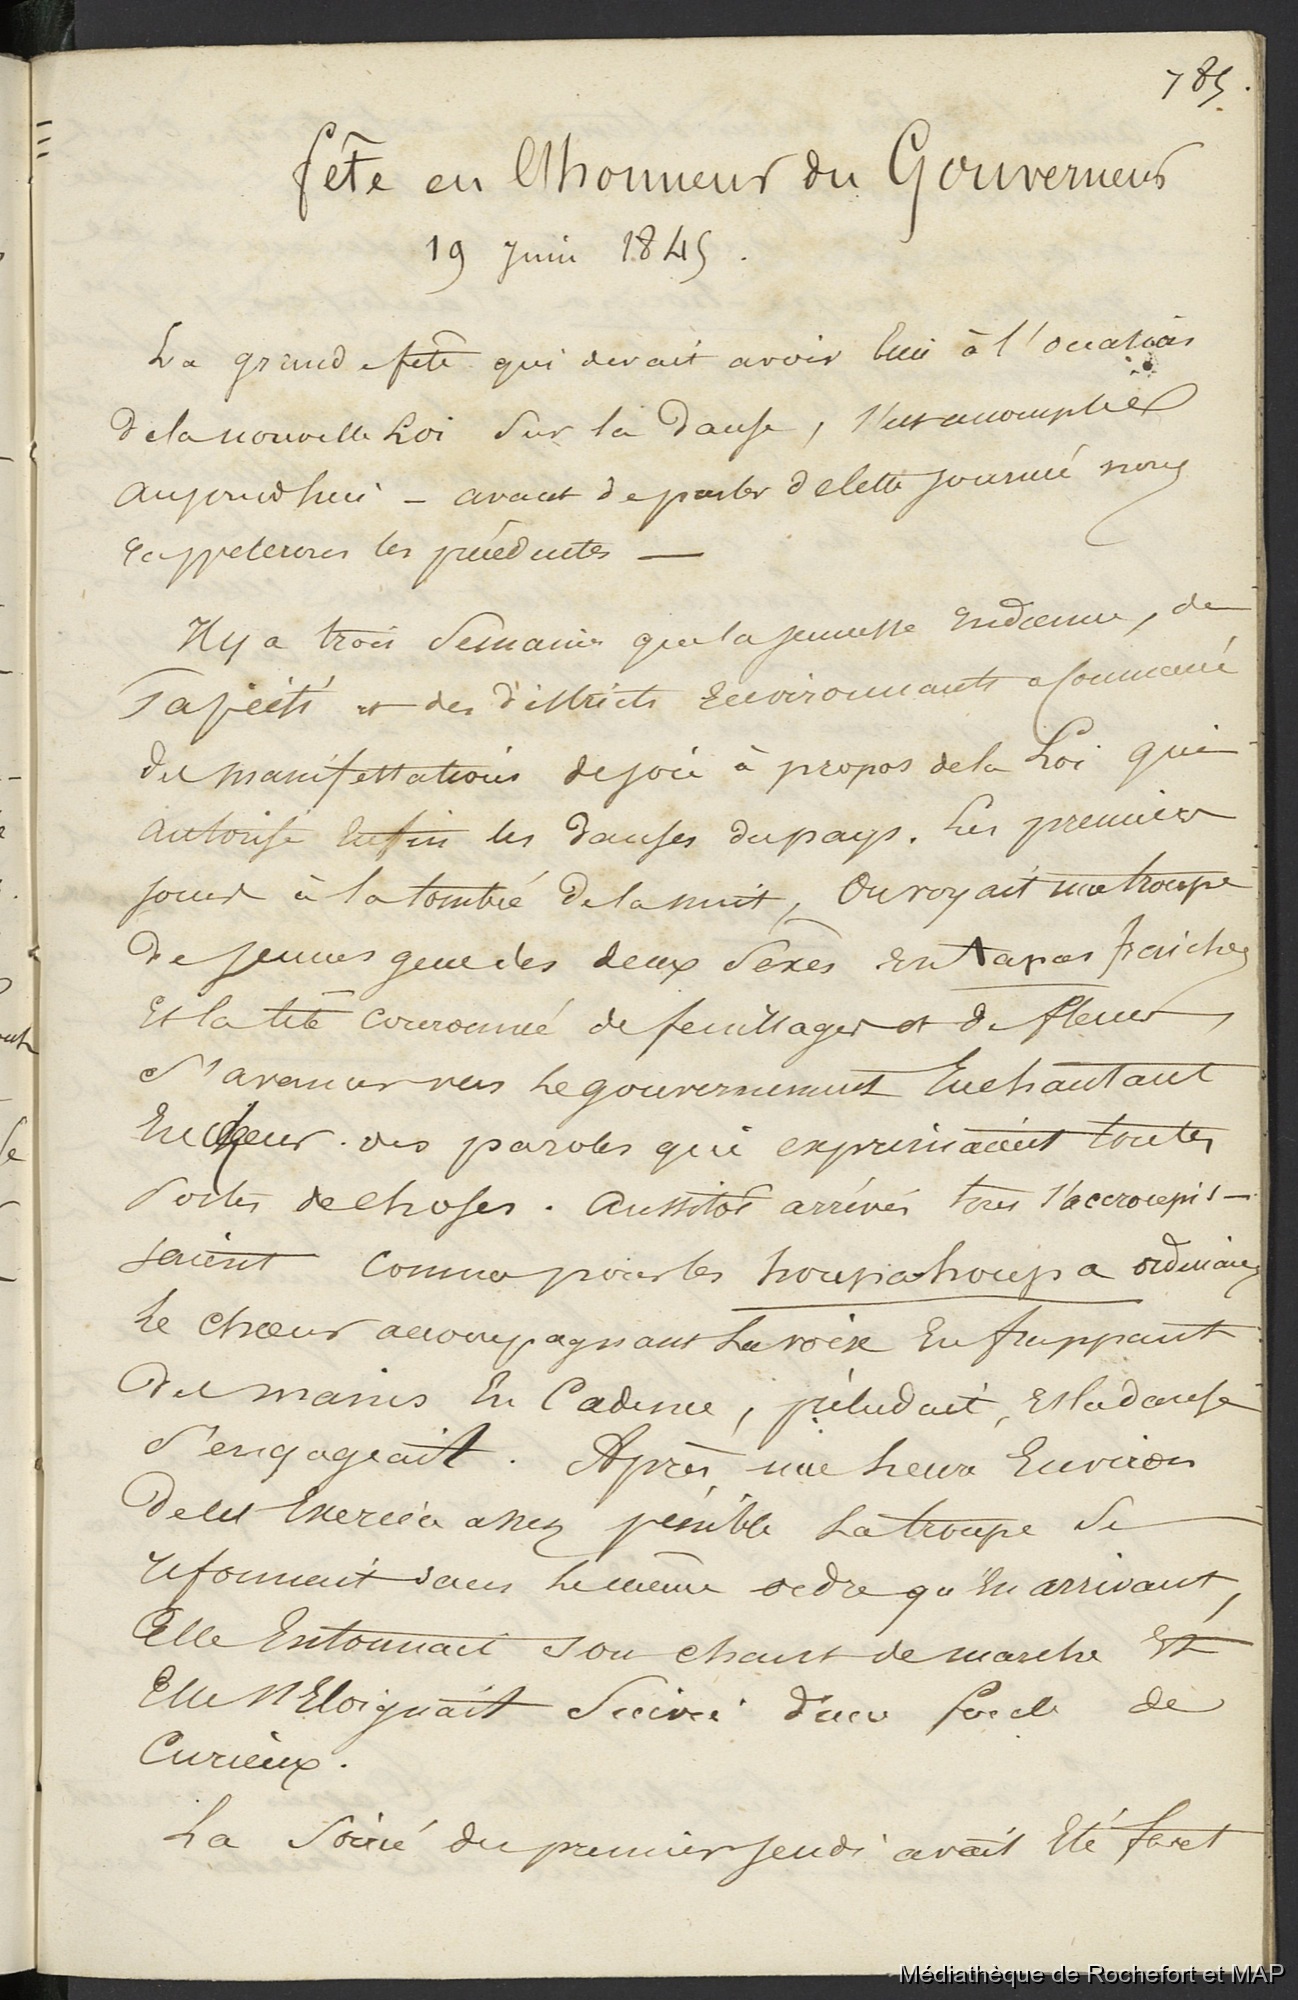 785.
fête en l'honneur du Gouverneur
19 Juin 1845.
La grande fête qui devait avoir lieu à l'occasion
de la nouvelle Loi sur la danse, s'est accomplie
aujourd'hui – avant de parler de cette journée nous
rappelerons les précédentes —
Il y a trois semaines que la jeunesse indienne, de
Papeiti et des districts environnants a commencé
des manifestations de joie à propos de la Loi qui
autorise enfin les danses du pays. Les premiers
jours à la tombée de la nuit, On voyait une troupe
de jeunes gens des deux sexes en tapas fraiches
et la tête couronné de feuillages et de fleurs,
s'avancer vers le gouvernement en chantant
en chœur des paroles qui exprimaient toutes
sortes de choses. Aussitôt arrivés tous s'accroupis-
saient comme pour les houpahoupa ordinaires
le chœur accompagnant la voix en frappant
des mains en cadence, préludait, et la danse
s'engageait. Après une heure environ
de cet exercice assez pénible la troupe se
reformait dans le même ordre qu'en arrivant,
Elle entonnait son chant de marche et
Elle s'éloignait suivie d'une foule de
curieux.
La soirée du premier jeudi avait été fort
Médiathèque de Rochefort et MAP